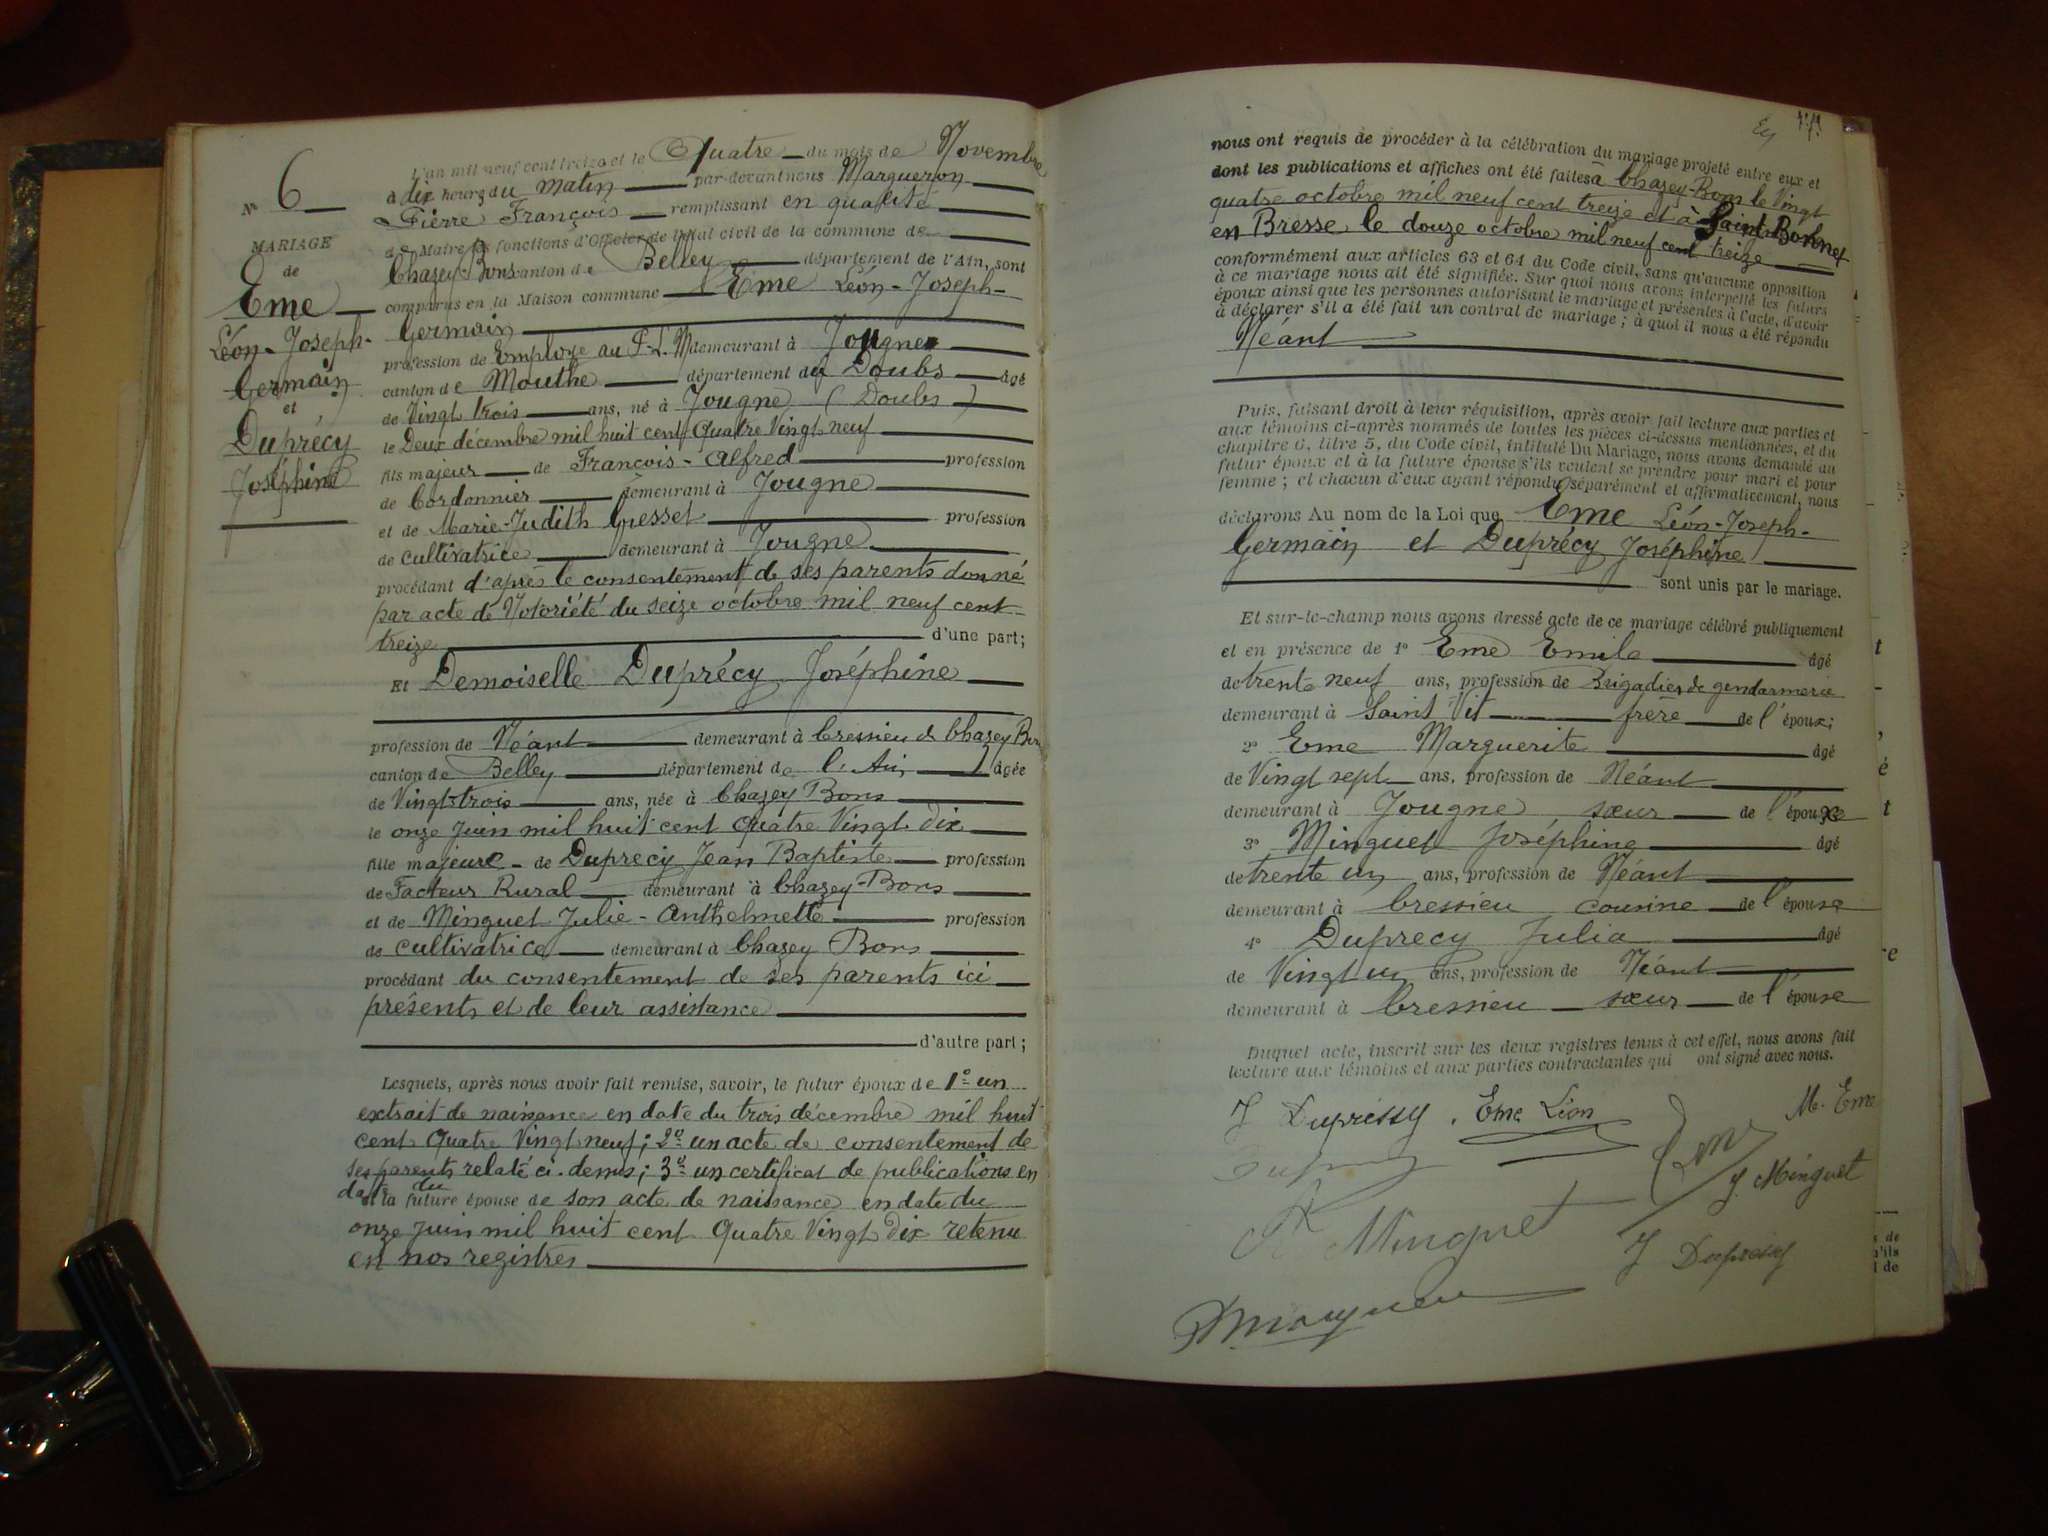 N° 6
MARIAGE
de
Eme
Léon-Joseph-
Germain
et
Duprécy
Joséphine
L'an mil neuf cent treize et le Quatre du mois de Novembre
à dix heures du matin par-devant nous Margueron
Pierre François remplissant en qualité
de Maire les fonctions d'Officier de l'état civil de la commune de
Chazey-Bons canton de Belley département de l'Ain, sont
comparus en la Maison commune Eme Léon-Joseph-
Germain
profession de Employé au P.L.M demeurant à Jougne
canton de Mouthe département du Doubs âgé
de Vingt trois ans, né à Jougne (Doubs)
le Deux décembre mil huit cent Quatre Vingt neuf
fils majeur de François-Alfred profession
de Cordonnier demeurant à Jougne
et de Marie-Judith Gresset profession
de cultivatrice demeurant à Jougne
procédant d'après le consentement de ses parents donné
par acte de Notoriété du seize octobre mil neuf cent
treize d'une part;
Et Demoiselle Duprécy Joséphine
profession de Néant demeurant à Cressieu d. Chazey Bons
canton de Belley département de l'Ain âgée
de Vingt-trois ans, née à Chazey Bons
le onze juin mil huit cent Quatre Vingt Dix
fille majeure de Duprecy Jean Baptiste profession
de Facteur Rural demeurant à Chazey-Bons
et de Minguet Julie-Anthelmette profession
de cultivatrice demeurant à Chazey Bons
procédant du consentement de ses parents ici
présents et de leur assistance
d'autre part;
Lesquels, après nous avoir fait remise, savoir, le futur époux de 1° un
extrait de naissance en date du trois décembre mil huit
cent Quatre Vingt neuf; 2° un acte de consentement de
ses parents relaté ci-dessus; 3° un certificat de publications en
date du
et la future épouse de son acte de naissance en date du
onze juin mil huit cent Quatre Vingt Dix retenu
en nos registres
nous ont requis de procéder à la célébration du mariage projeté entre eux et
dont les publications et affiches ont été faites à Chazey-Bons le Vingt
quatre octobre mil neuf cent treize et à Saint Bonnet
en Bresse le douze octobre mil neuf cent treize
conformément aux articles 63 et 64 du Code civil, sans qu'aucune opposition
à ce mariage nous ait été signifiée. Sur quoi nous avons interpellé les futurs
époux ainsi que les personnes autorisant le mariage et présentes à l'acte, d'avoir
à déclarer s'il a été fait un contrat de mariage; à quoi il nous a été répondu
Néant
Puis, faisant droit à leur réquisition, après avoir fait lecture aux parties et
aux témoins ci-après nommés de toutes les pièces ci-dessus mentionnées, et du
chapitre 6, titre 5, du Code civil, intitulé Du Mariage, nous avons demandé au
futur époux et à la future épouse s'ils veulent se prendre pour mari et pour
femme; et chacun d'eux ayant répondu séparément et affirmativement, nous
déclarons Au nom de la Loi que Eme Léon-Joseph-
Germain et Duprécy Joséphine
sont unis par le mariage.
Et sur-le-champ nous avons dressé acte de ce mariage célébré publiquement
et en présence de 1° Eme Emile âgé
de trente neuf ans, profession de Brigadier de gendarmerie
demeurant à Saint Vit frère de l'époux;
2° Eme Marguerite âgé
de Vingt sept ans, profession de Néant
demeurant à Jougne sœur de l'époux
3° Minguet Joséphine âgé
de trente un ans, profession de Néant
demeurant à Cressieu cousine de l'épouse
4° Duprecy Julia âgé
de Vingt un ans, profession de Néant
demeurant à Cressieu sœur de l'épouse
Duquel acte, inscrit sur les deux registres tenus à cet effet, nous avons fait
lecture aux témoins et aux parties contractantes qui ont signé avec nous.
J Dupressy. Eme Léon M. Eme
J. Minguet
Minguet
J Dupressy